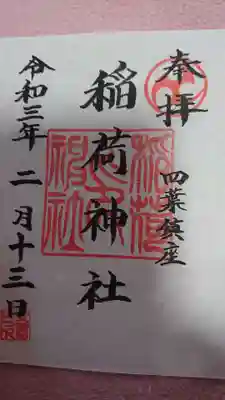 奉拝
四葉鎮座
稲荷神社
令和三年二月十三日